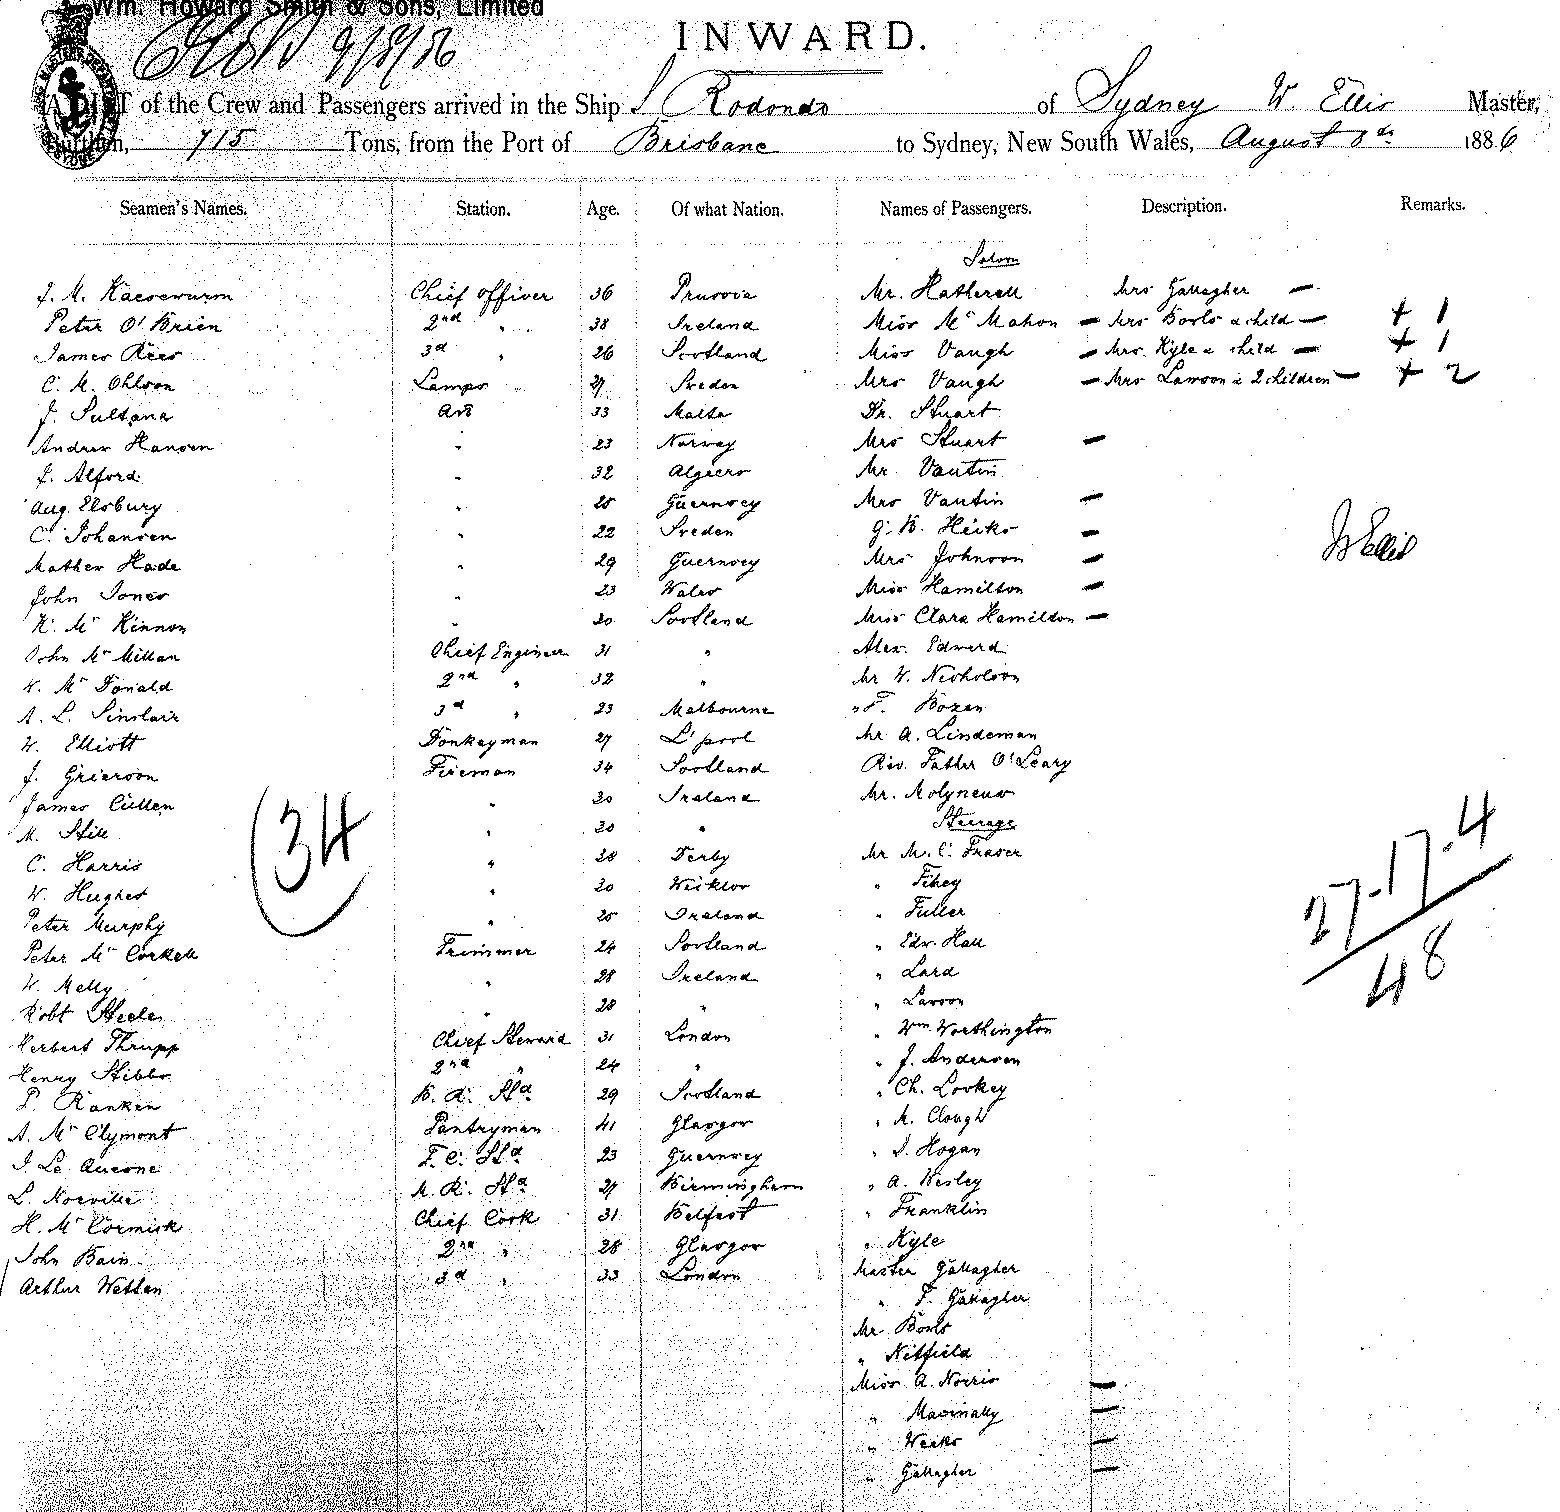 Wm. Howard Smith & Sons, Limited
9/8/86
INWARD.
A LIST of the Crew and Passengers arrived in the Ship S Rodondo of Sydney W. Ellis Master,
Burthen, 715 Tons, from the Port of Brisbane to Sydney, New South Wales, August 8th 1886
Seamen's Names. Station. Age. Of what Nation. Names of Passengers. Description. Remarks.
Saloon
J. M. Chief Officer 36 Prussia Mr. Hatherell Mrs Gallagher —
Peter O'Brien 2nd " 38 Ireland Miss McMahon — Mrs Bowls & child — + 1
James Rees 3rd " 26 Scotland Miss Vaugh — Mrs Kyle & child — + 1
C. M. Ohlson Lamps 27 Sweden Mrs Vaugh — Mrs Lawson & 2 children — + 2
J. Sultana AB 33 Malta Dr. Stuart
Andrew Hansen " 23 Norway Mrs Stuart —
J. Alford " 32 Algiers Mr. Vautin
Aug. Elsbury " 25 Guernsey Mrs Vautin —
C. Johansen " 22 Sweden G. B. Hicks —
Mather Hade " 29 Guernsey Mrs Johnson —
W Ellis
John Jones " 23 Wales Miss Hamilton —
K. McKinnon " 30 Scotland Miss Clara Hamilton —
John McMillan Chief Engineer 31 " Alex. Edward
W. McDonald 2nd " 32 " Mr W. Nicholson
A. L. Sinclair 3rd " 23 Melbourne " F. Bozen
W. Elliott Donkeyman 27 L'pool Mr A. Lindeman
J. Grierson Fireman 34 Scotland Rev. Father O'Leary
James Cullen " 30 Ireland Mr. Molyneux
M. Still " 30 " Steerage
34
C. Harris " 28 Derby Mr M. C. Fraser
W. Hughes " 30 Wicklow " Fihey
Peter Murphy " 25 Ireland " Fuller
27-17-4
48
Peter McCorkell Trimmer 24 Scotland " Edw. Hall
W. Melly " 28 Ireland " Lard
Robt Steele " 28 " " Lawson
Herbert Thrupp Chief Steward 31 London " Wm Worthington
Henry Stibbs 2nd " 24 " " J. Andersen
P. Ranken B. R. Std 29 Scotland " Ch. Lockey
A. McClymont Pantryman 41 Glasgow " M. Clough
J. Le F. C. Std 23 Guernsey " D. Hogan
L. Norville M. R. Std 27 Birmingham " A. Wesley
H. McCormick Chief Cook 31 Belfast " Franklin
John Bain 2nd " 28 Glasgow " Kyle
Arthur Wetten 3d " 33 London Master Gallagher
" F. Gallagher
Mr Bowls
" Netfield
Miss A. Norris —
" Macinally —
" Weeks —
" Gallagher —